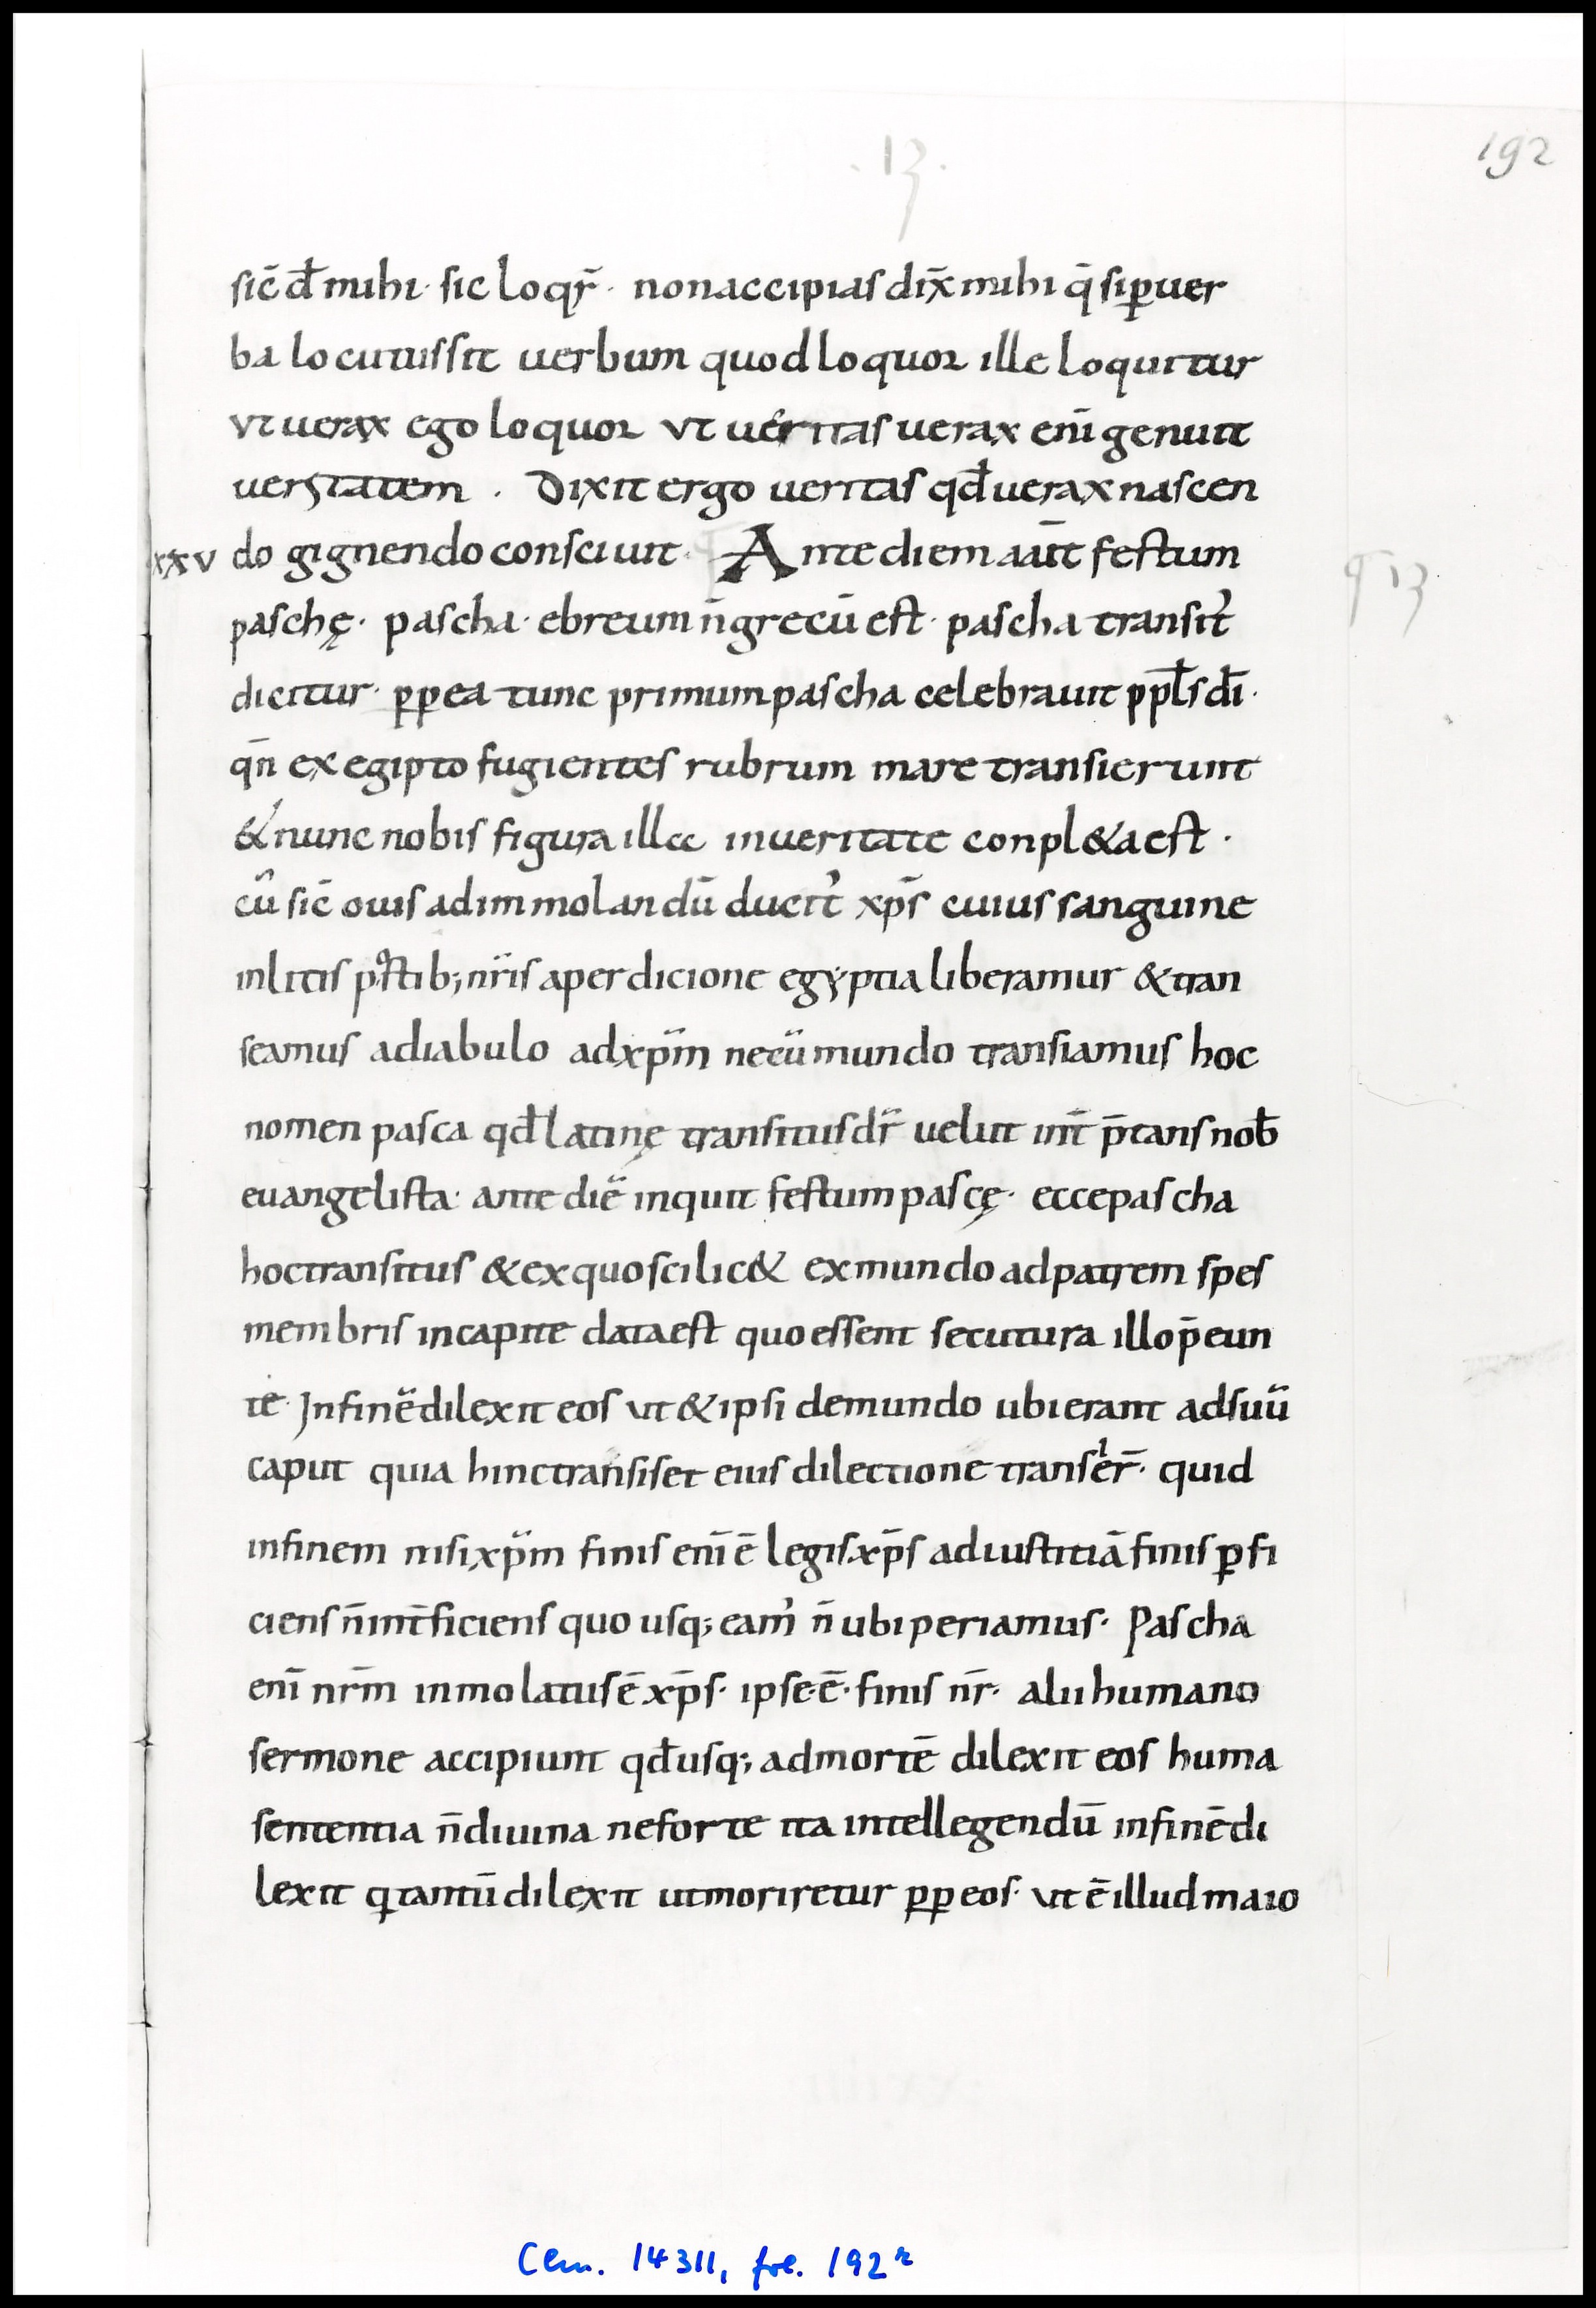 . 13 .
192
sic̄ đ mihi · sic loqr̄ · non accipias dix̄ mihi q̄ si ꝑ uer
ba locutus sit uerbum quod loquor ille loquitur
vt uerax ego loquor vt ueritas uerax enī genuit
ueritatem . Dixit ergo ueritas qđ uerax nascen
xxv do gignendo consciuit · Ante diem aūt festum
q 13
paschę · pascha · ebreum n̄ grecū est · pascha transit᷒
dicitur · ꝑꝑ ea tunc primum pascha celebrauit ppl̄s dī ·
qn̄ ex egipto fugientes rubrum mare transierunt
& nunc nobis figura illa in ueritate conpl&a est ·
cū sic̄ ouis ad immolandū ducit᷒ xp̄s cuius sanguine
inlitis postib; nr̄is a perdicione egyptia liberamur & tran
seamus a diabulo ad xp̄m ne cū mundo transiamus hoc
nomen pasca qđ latinę transitus dr̄ uelut int̄ p̄tans nob̄
euangelista · ante diē inquit festum pascę · ecce pascha
hoc transitus & ex quo scilic& ex mundo ad patrem spes
membris in capite data est quo essent secutura illo p̄eun
te · In finē dilexit eos vt & ipsi de mundo ubi erant ad suū
caput quia hinc transiset eius dilectione transier̄ · quid
in finem nisi xp̄m finis enī ē legis xp̄s ad iustitiā finis ꝑfi
ciens n̄ int̄ficiens quo usq; eam᷒ n̄ ubi periamus · Pascha
enī nr̄m inmolatus ē xp̄s · ipse · ē · finis nr̄ · alii humano
sermone accipiunt qđ usq; ad mortē dilexit eos huma
sententia n̄ diuina ne forte ita intellegendū in finē di
lexit q tantū dilexit ut moriretur ꝑꝑ eos · vt ē illud maio
Clm. 14311, fol. 192r